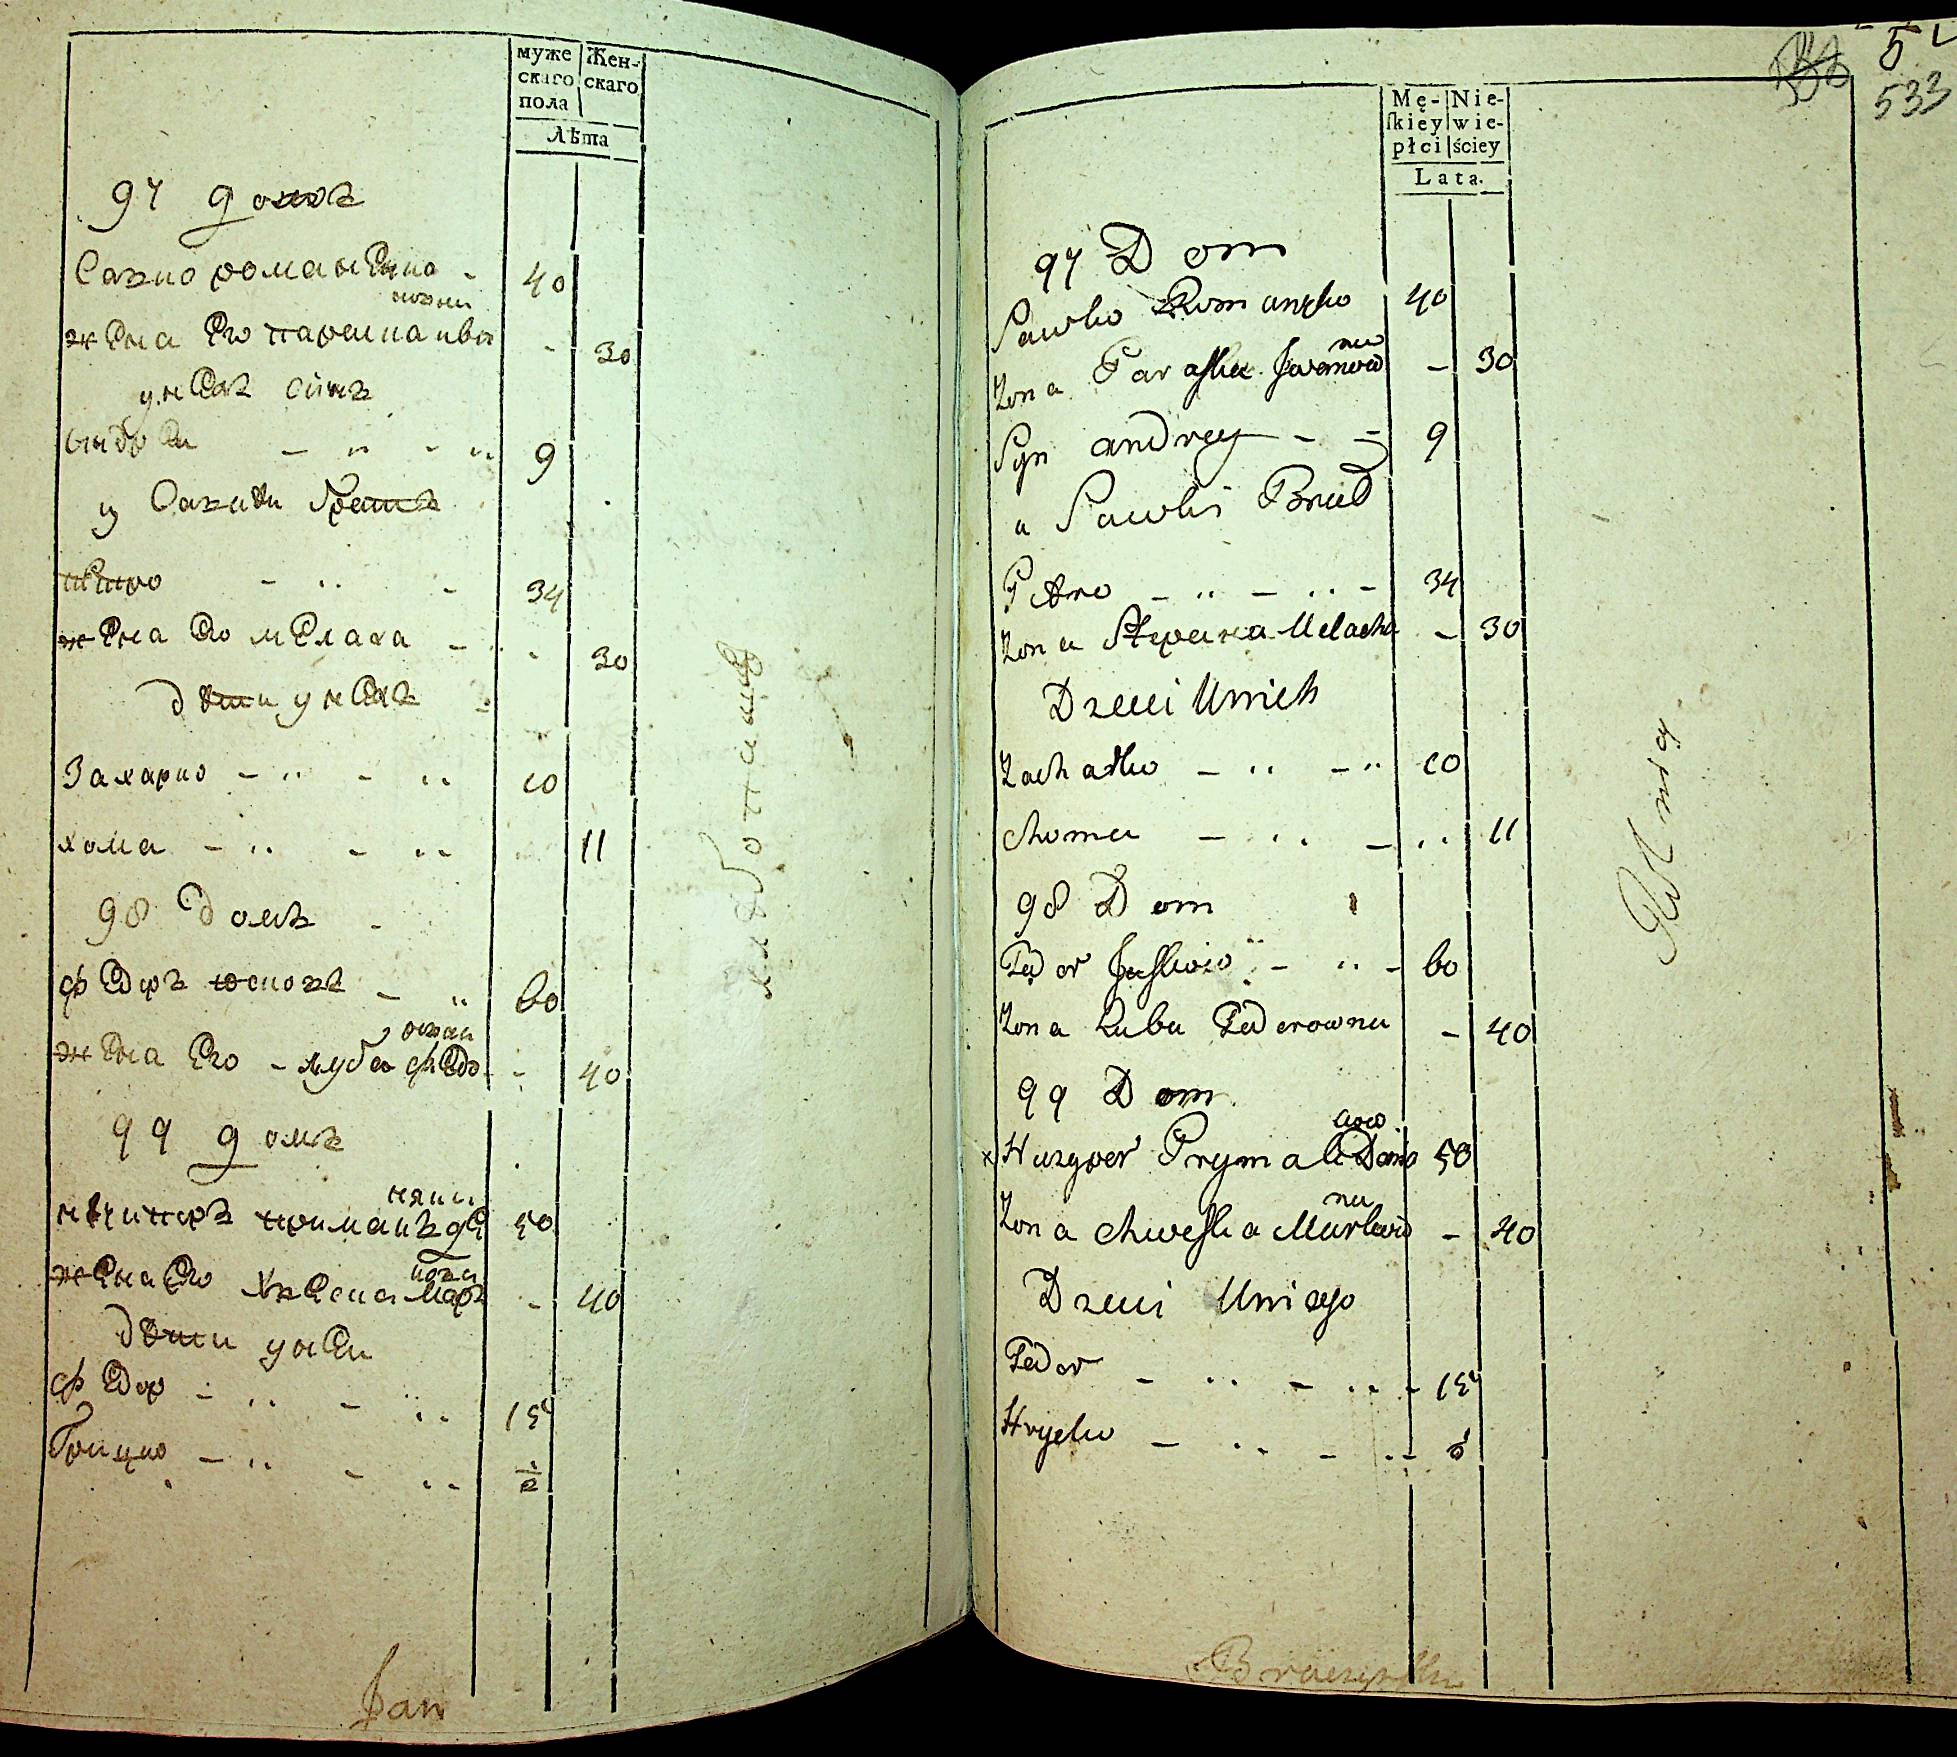 муже
скаго
пола
Жен-
скаго
Лѣта
97 домъ
Савко романенко - 40
новна
жена его параска ива - 30
у нехъ синъ
андрей - 9
у Савки братъ
петро - 34
жена его мелаха - 30
дѣти у нехъ
Захарко - 10
хома - 11
98 домъ
федоръ - 60
ровна
жена его - люба федо - 40
99 домъ
нѣчипоръ примакъ де 50
жена его хвеска Марк - 40
дѣти у неи
федор - 15
Грицко - 2
Jan
5
533
Mę-
ſkiey
płci
Nie-
wie-
ściey
Lata.
97 Dom
Sawko Romanęko 40
na
Żona Paraſka Jwanow - 30
Syn andrey - 9
u Sawki Brad
Petro - 34
Żona Melacha - 30
Dzeci Unich
Zacharko - 10
Choma - 11
98 Dom
Fedor - 60
Żona Luba Federowna - 40
99 Dom
Prymak 50
na
Żona Chweſka Markow - 40
Dzeci Uniego
Fedor - 15
Hrycko